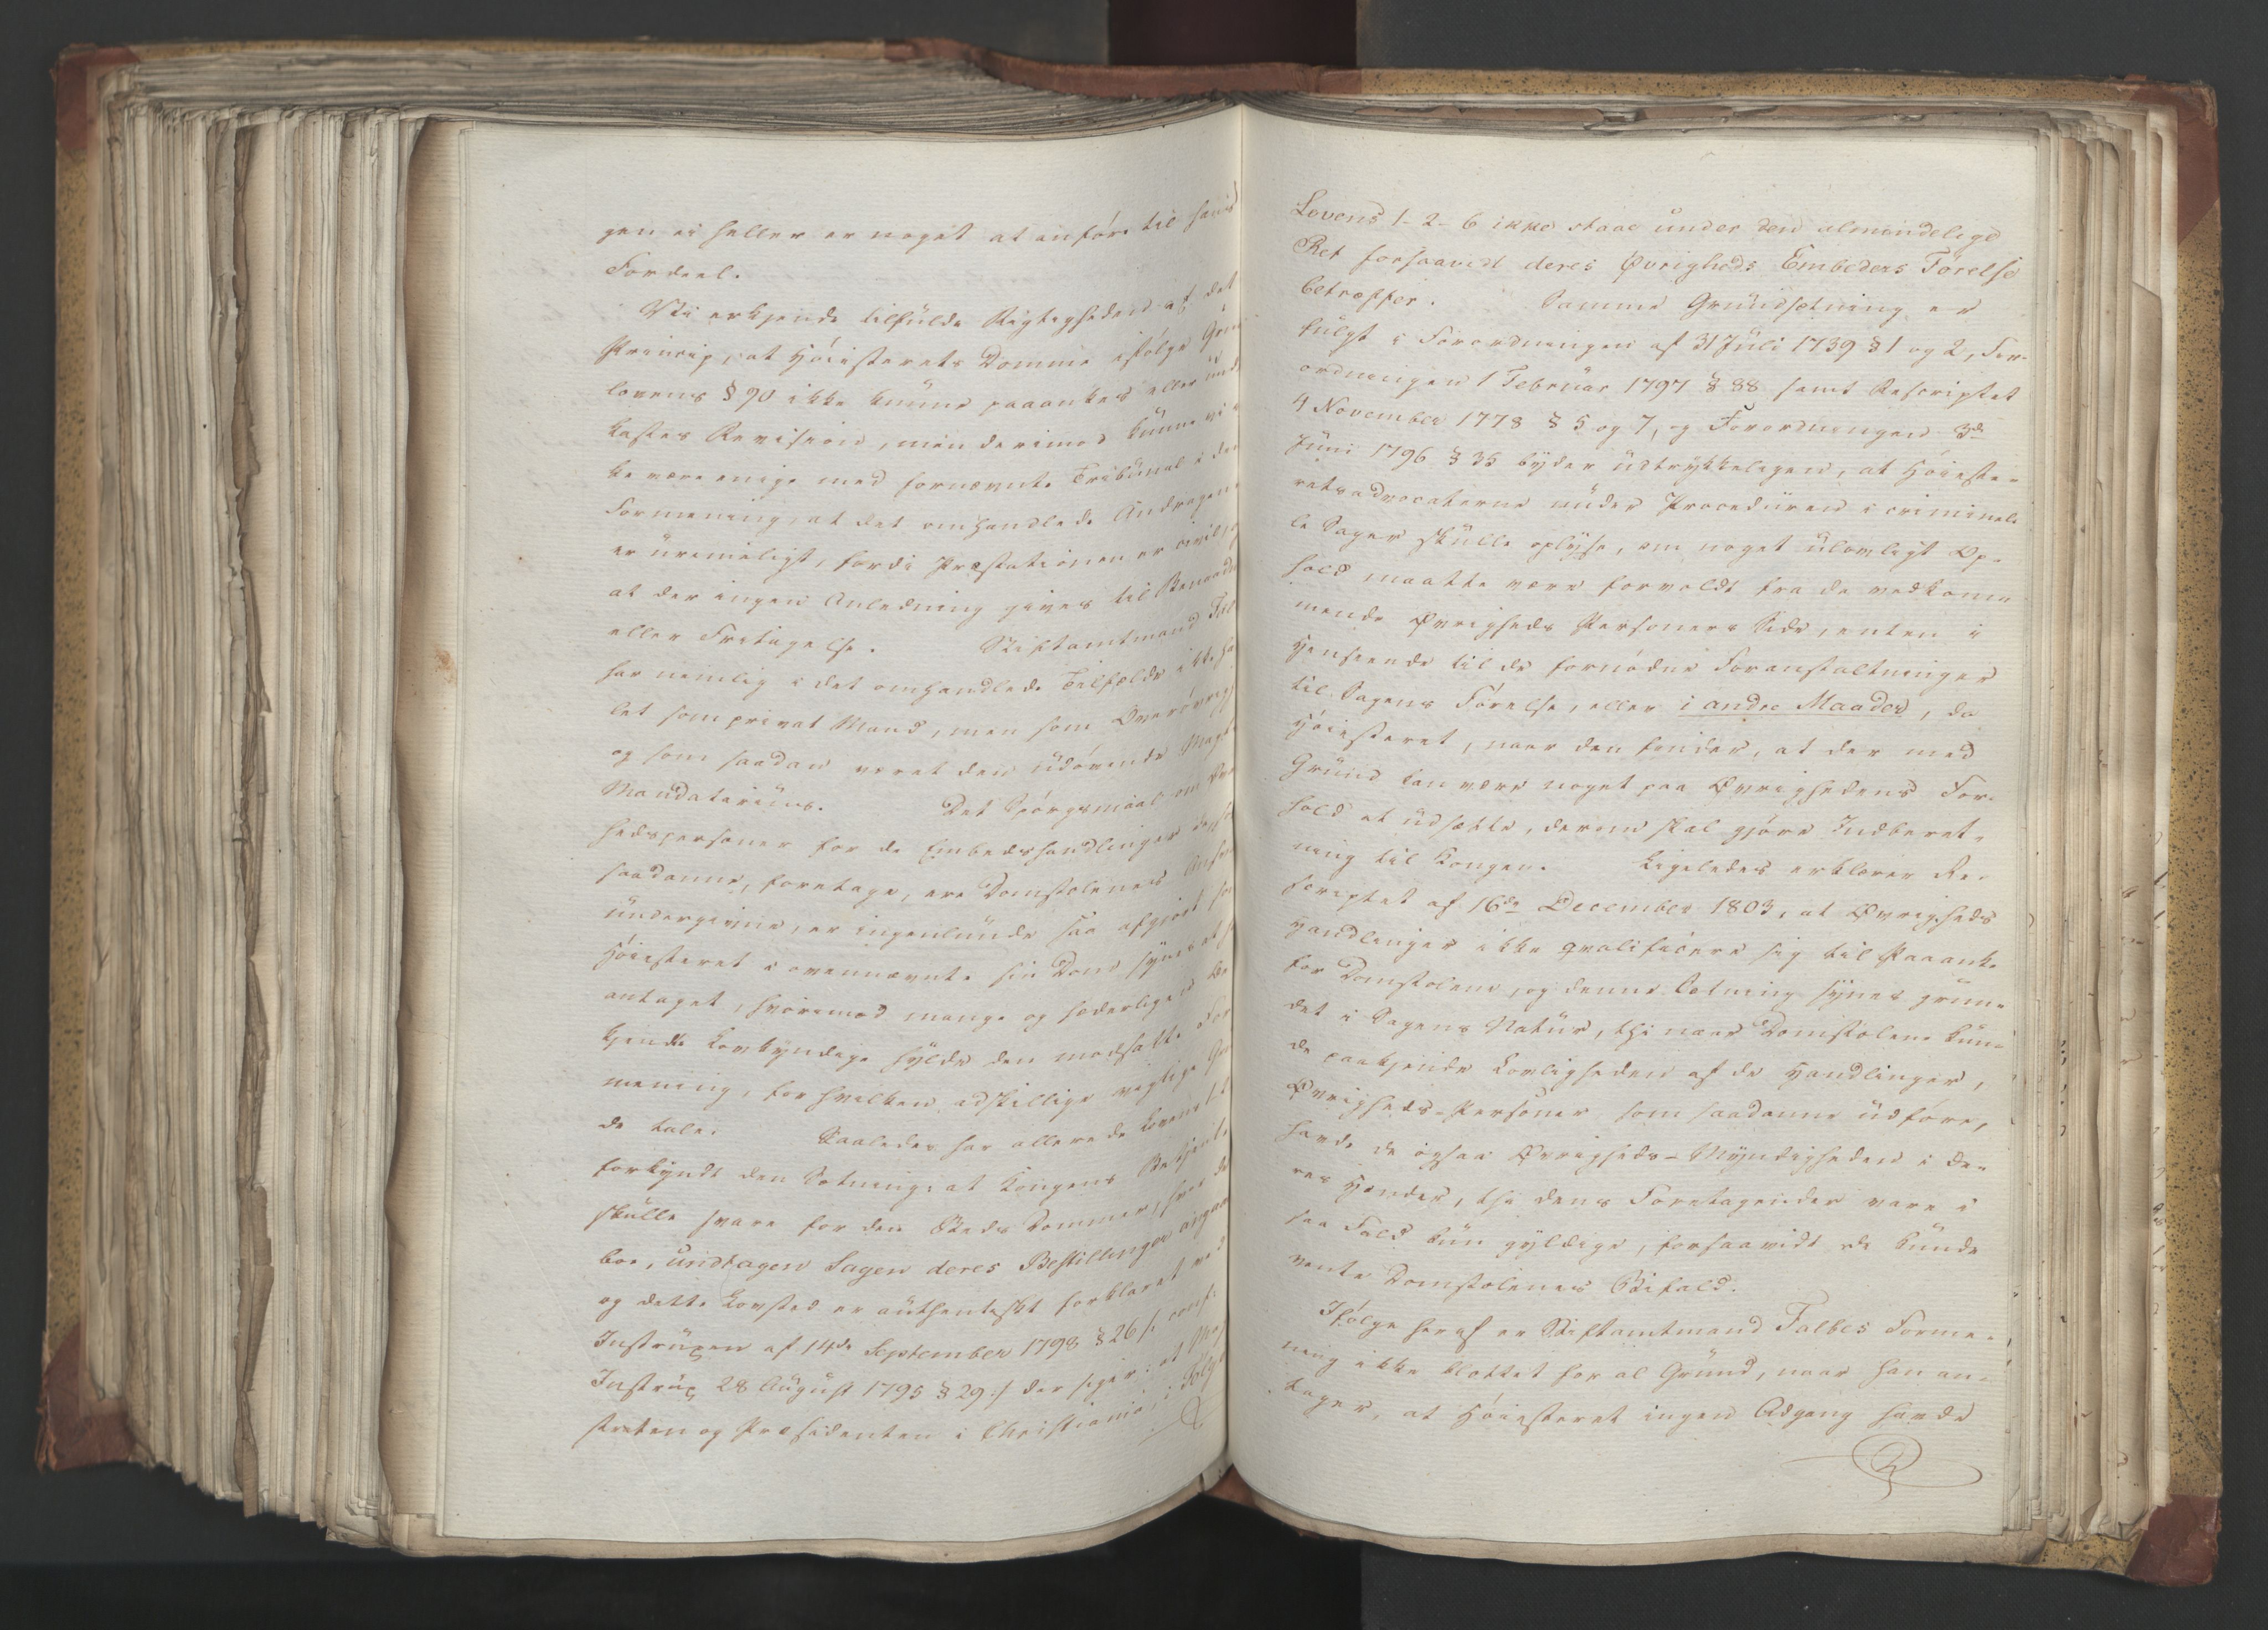 gen ei heller er noget at anføre til hans
Fordeel.
Vi erkjende tilfulde Rigtigheden af det
Princip, at Høiesterets Domme ifølge Grund
lovens § 90 ikke kunne paaankes eller und
kastes Revision, men derimod kunne vi i
ke være enige med fornævnte Tribunal i den
Formening, at det omhandlede Andragen
er urimeligt, fordi Præstationen er civil, og
at der ingen Anledning gives til Benaad
eller Fritagelse. Stiftamtmand Fal
har nemlig i det omhandlede Tilfælde ikke ha
let som privat Mand, men som Overøvrigh
og som saadan været den udøvende Magts
Mandatarius. Det Spørgsmaal om Øvr
hedspersoner for de Embedshandlinger de, so
saadanne, foretage, ere Domstolenes
undergivne, er ingenlunde saa afgjort som
Høiesteret i ovennævnte sin Dom synes at h
antaget, hvorimod mange og hæderligen be
kjendte Lovkyndige hylde den modsatte For
mening, for hvilken adskillige vigtige Grun
de tale. Saaledes har allerede Lovens 1-2
forkyndt den Sætning, at Kongens Betjente
skulle svare for den Steds Dommer, hvor de
boe, undtagen Sagen deres Bestillinger angaar
og dette Lovsted er authentiskt forklaret ved
Instruxen af 14de September 1798 § 26 /: conf.
Instrux 28 August 1795 § 29 :/ der siger: at Magi
straten og Præsidenten i Christiania, i Følge
Lovens 1-2-6 ikke staae under den almindelige
Ret forsaavidt deres Øvrigheds Embeders Førelse
betræffer. Samme Grundsætning er
fulgt i Forordningen af 31 Juli 1739 § 1 og 2, For-
ordningen 1 Februar 1797 § 88 samt Rescriptet
4 November 1778 § 5 og 7, og Forordningen 3de
Juni 1796 § 35 byder udtrykkeligen, at Høieste-
retsadvocaterne under Proceduren i criminel-
le Sager skulle oplyse, om noget ulovligt Op-
hold maatte være forvoldt fra de vedkom-
mende Øvrigheds Personers Side, enten i
Henseende til de fornødne Foranstaltninger
til Sagens Førelse, eller i andre Maader, da
Høiesteret, naar den finder, at der med
Grund kan være noget paa Øvrighedens For-
hold at udsætte, derom skal gjøre Indberet-
ning til Kongen. Ligeledes erklærer Re-
scriptet af 16de December 1803, at Øvrigheds
Handlinger ikke qvalificere sig til Paaanke
for Domstolene, og denne Sætning synes grun-
det i Sagens Natur, thi naar Domstolene kun-
de paakjende Lovligheden af de Handlinger,
Øvrigheds-Personer som saadanne udføre,
havde de ogsaa Øvrigheds-Myndigheden i de-
res Hænder, thi dens Foretagender vare i
saa Fald kun gyldige, forsaavidt de kunde
vente Domstolenes Bifald.
Ifølge heraf er Stiftamtmand Falbes Forme-
ning ikke blottet for al Grund, naar han an-
tager, at Høiesteret ingen Adgang havde